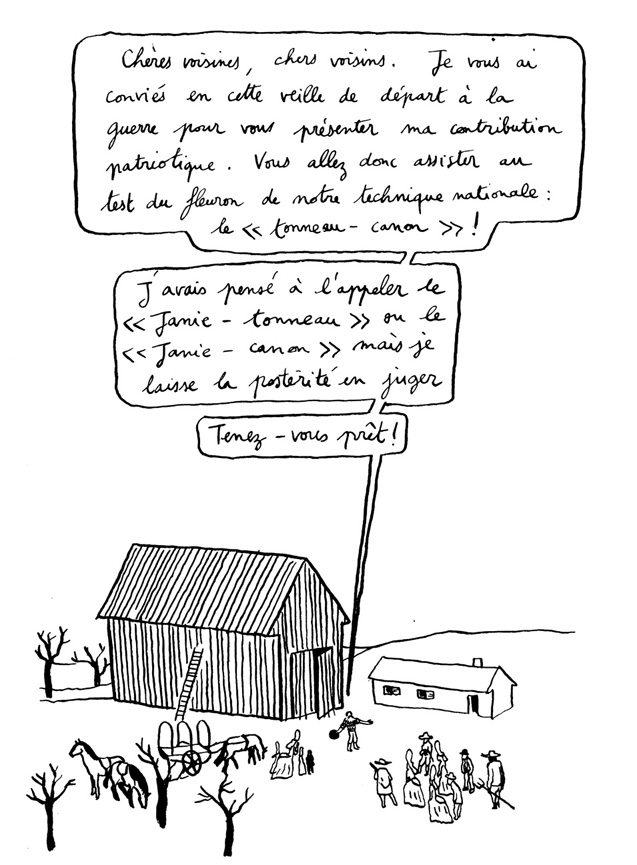 Chères voisines, chers voisins. Je vous ai
conviés en cette veille de départ à la
guerre pour vous présenter ma contribution
patriotique. Vous allez donc assister au
test du fleuron de notre technique nationale :
le << tonneau - canon >> !
J'avais pensé à l'appeler le
<< Janie - tonneau >> ou le
<< Janie - canon >> mais je
laisse la postérité en juger
Tenez - vous prêt !